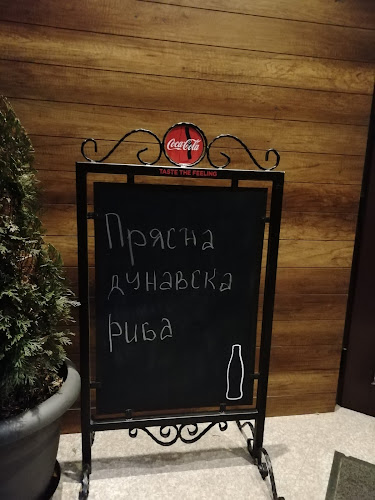 Coca-Cola
TASTE THE FEELING
Прясна
дунавска
риба